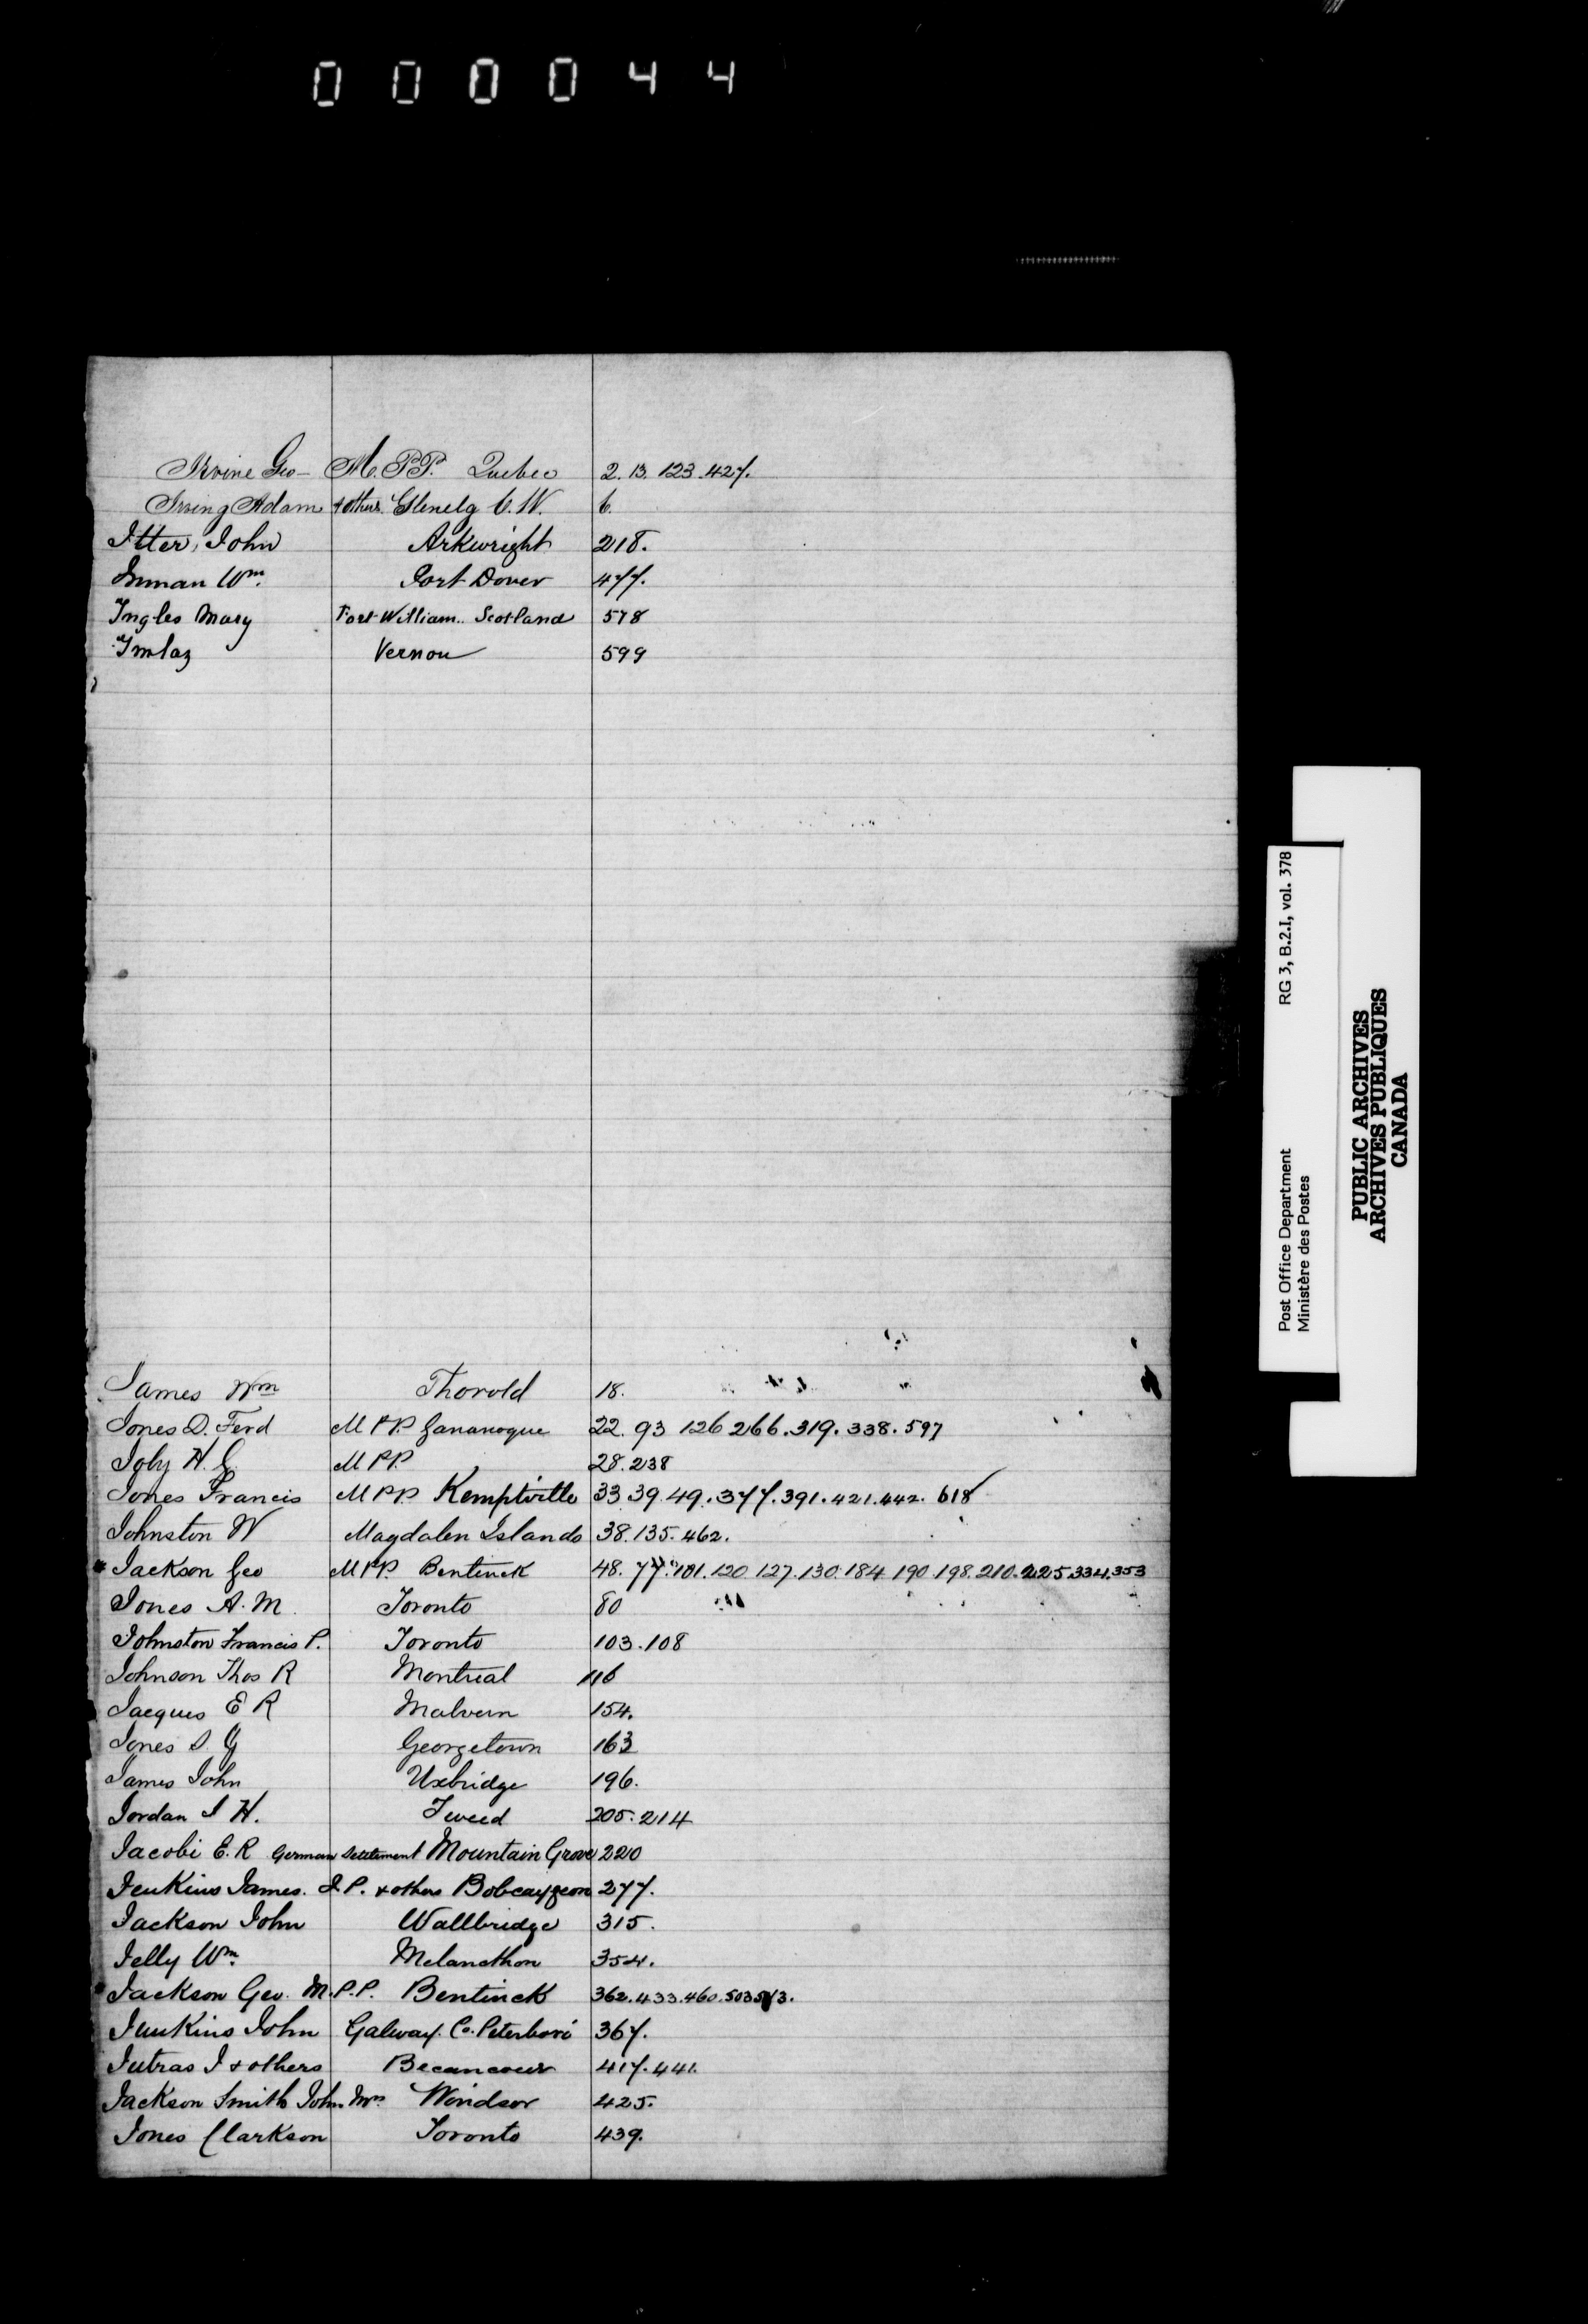 000044
Irvine Geo- M.P.P. Quebec 2. 13. 123. 427.
Irving Adam & others. Glenelg C.W. 6.
Itter, John Arkwright 218.
Inman Wm. Port Dover 477.
Ingles Mary Fort William.. Scotland 578
Imlaz Vernon 599
James Wm Thorold 18.
Jones D. Ferd M P.P. Gananoque 22. 93 126 266. 319. 338. 597
Joly H. G. M P.P. 28. 238
Jones Francis M P.P. Kemptville 33 39. 49. 377. 391. 421. 442. 618
Johnston W Magdalen Islands 38. 135. 462.
Jackson Geo M P.P. Bentinck 48. 77. 101. 120 127. 130. 184 190. 198. 210. 225. 334. 353
Jones A. M. Toronto 80
Johnston Francis P. Toronto 103. 108
Johnson Thos R Montreal 116
Jacques E R Malvern 154.
Jones S. G Georgetown 163
James John Uxbridge 196.
Jordan I H. Tweed 205. 214
Jacobi E. R German Settlement Mountain Grove 220
Jenkins James. J.P. & others Bobcaygeon 277.
Jackson John Wallbridge 315.
Jelly Wm. Melancthon 354.
Jackson Geo. M.P.P. Bentinck 362. 433. 460. 503
Jenkins John Galway. Co. Peterboro' 367.
Jutras J & others Becancour 417. 441.
Jackson Smith John Mrs. Windsor 425.
Jones Clarkson Toronto 439.
Post Office Department RG 3, B.2.I, vol. 378
Ministère des Postes
PUBLIC ARCHIVES
ARCHIVES PUBLIQUES
CANADA